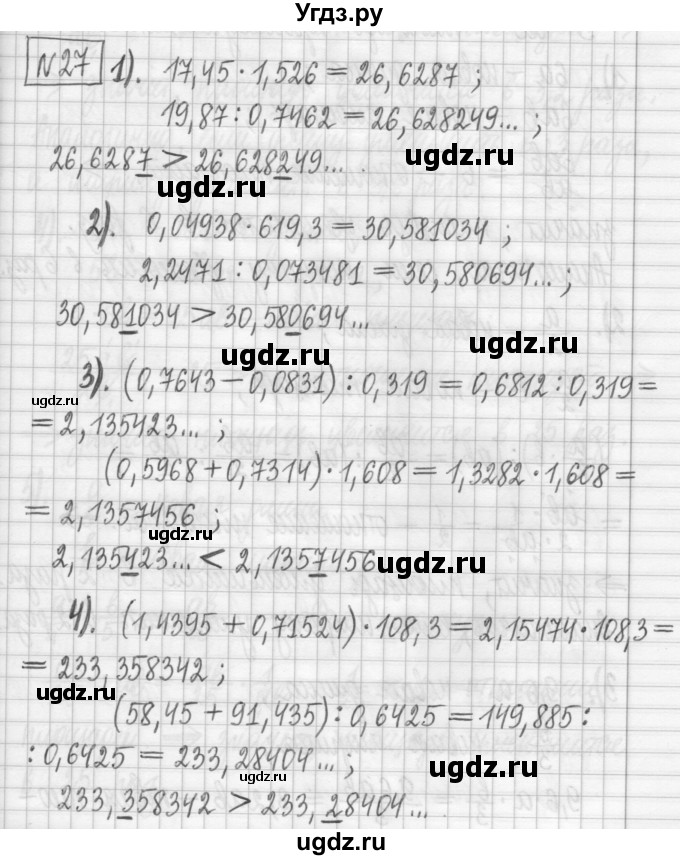 Угдз.ру
№27 1). 17,45 · 1,526 = 26,6287 ;
19,87 : 0,7462 = 26,628249... ;
26,6287 > 26,628249... .
ugdz.ru
ugdz.ru
ugdz.ru
2). 0,04938 · 619,3 = 30,581034 ;
2,2471 : 0,073481 = 30,580694... ;
30,581034 > 30,580694... .
ugdz.ru
ugdz.ru
3). (0,7643 – 0,0831) : 0,319 = 0,6812 : 0,319 =
ugdz.ru
= 2,135423... ;
(0,5968 + 0,7314) · 1,608 = 1,3282 · 1,608 =
= 2,1357456 ;
ugdz.ru
2,135423... < 2,1357456
ugdz.ru
4). (1,4395 + 0,71524) · 108,3 = 2,15474 · 108,3 =
= 233,358342 ;
ugdz.ru
(58,45 + 91,435) : 0,6425 = 149,885 :
: 0,6425 = 233,28404... ;
ugdz.ru
ugdz.ru
233,358342 > 233,28404... .
ugdz.ru